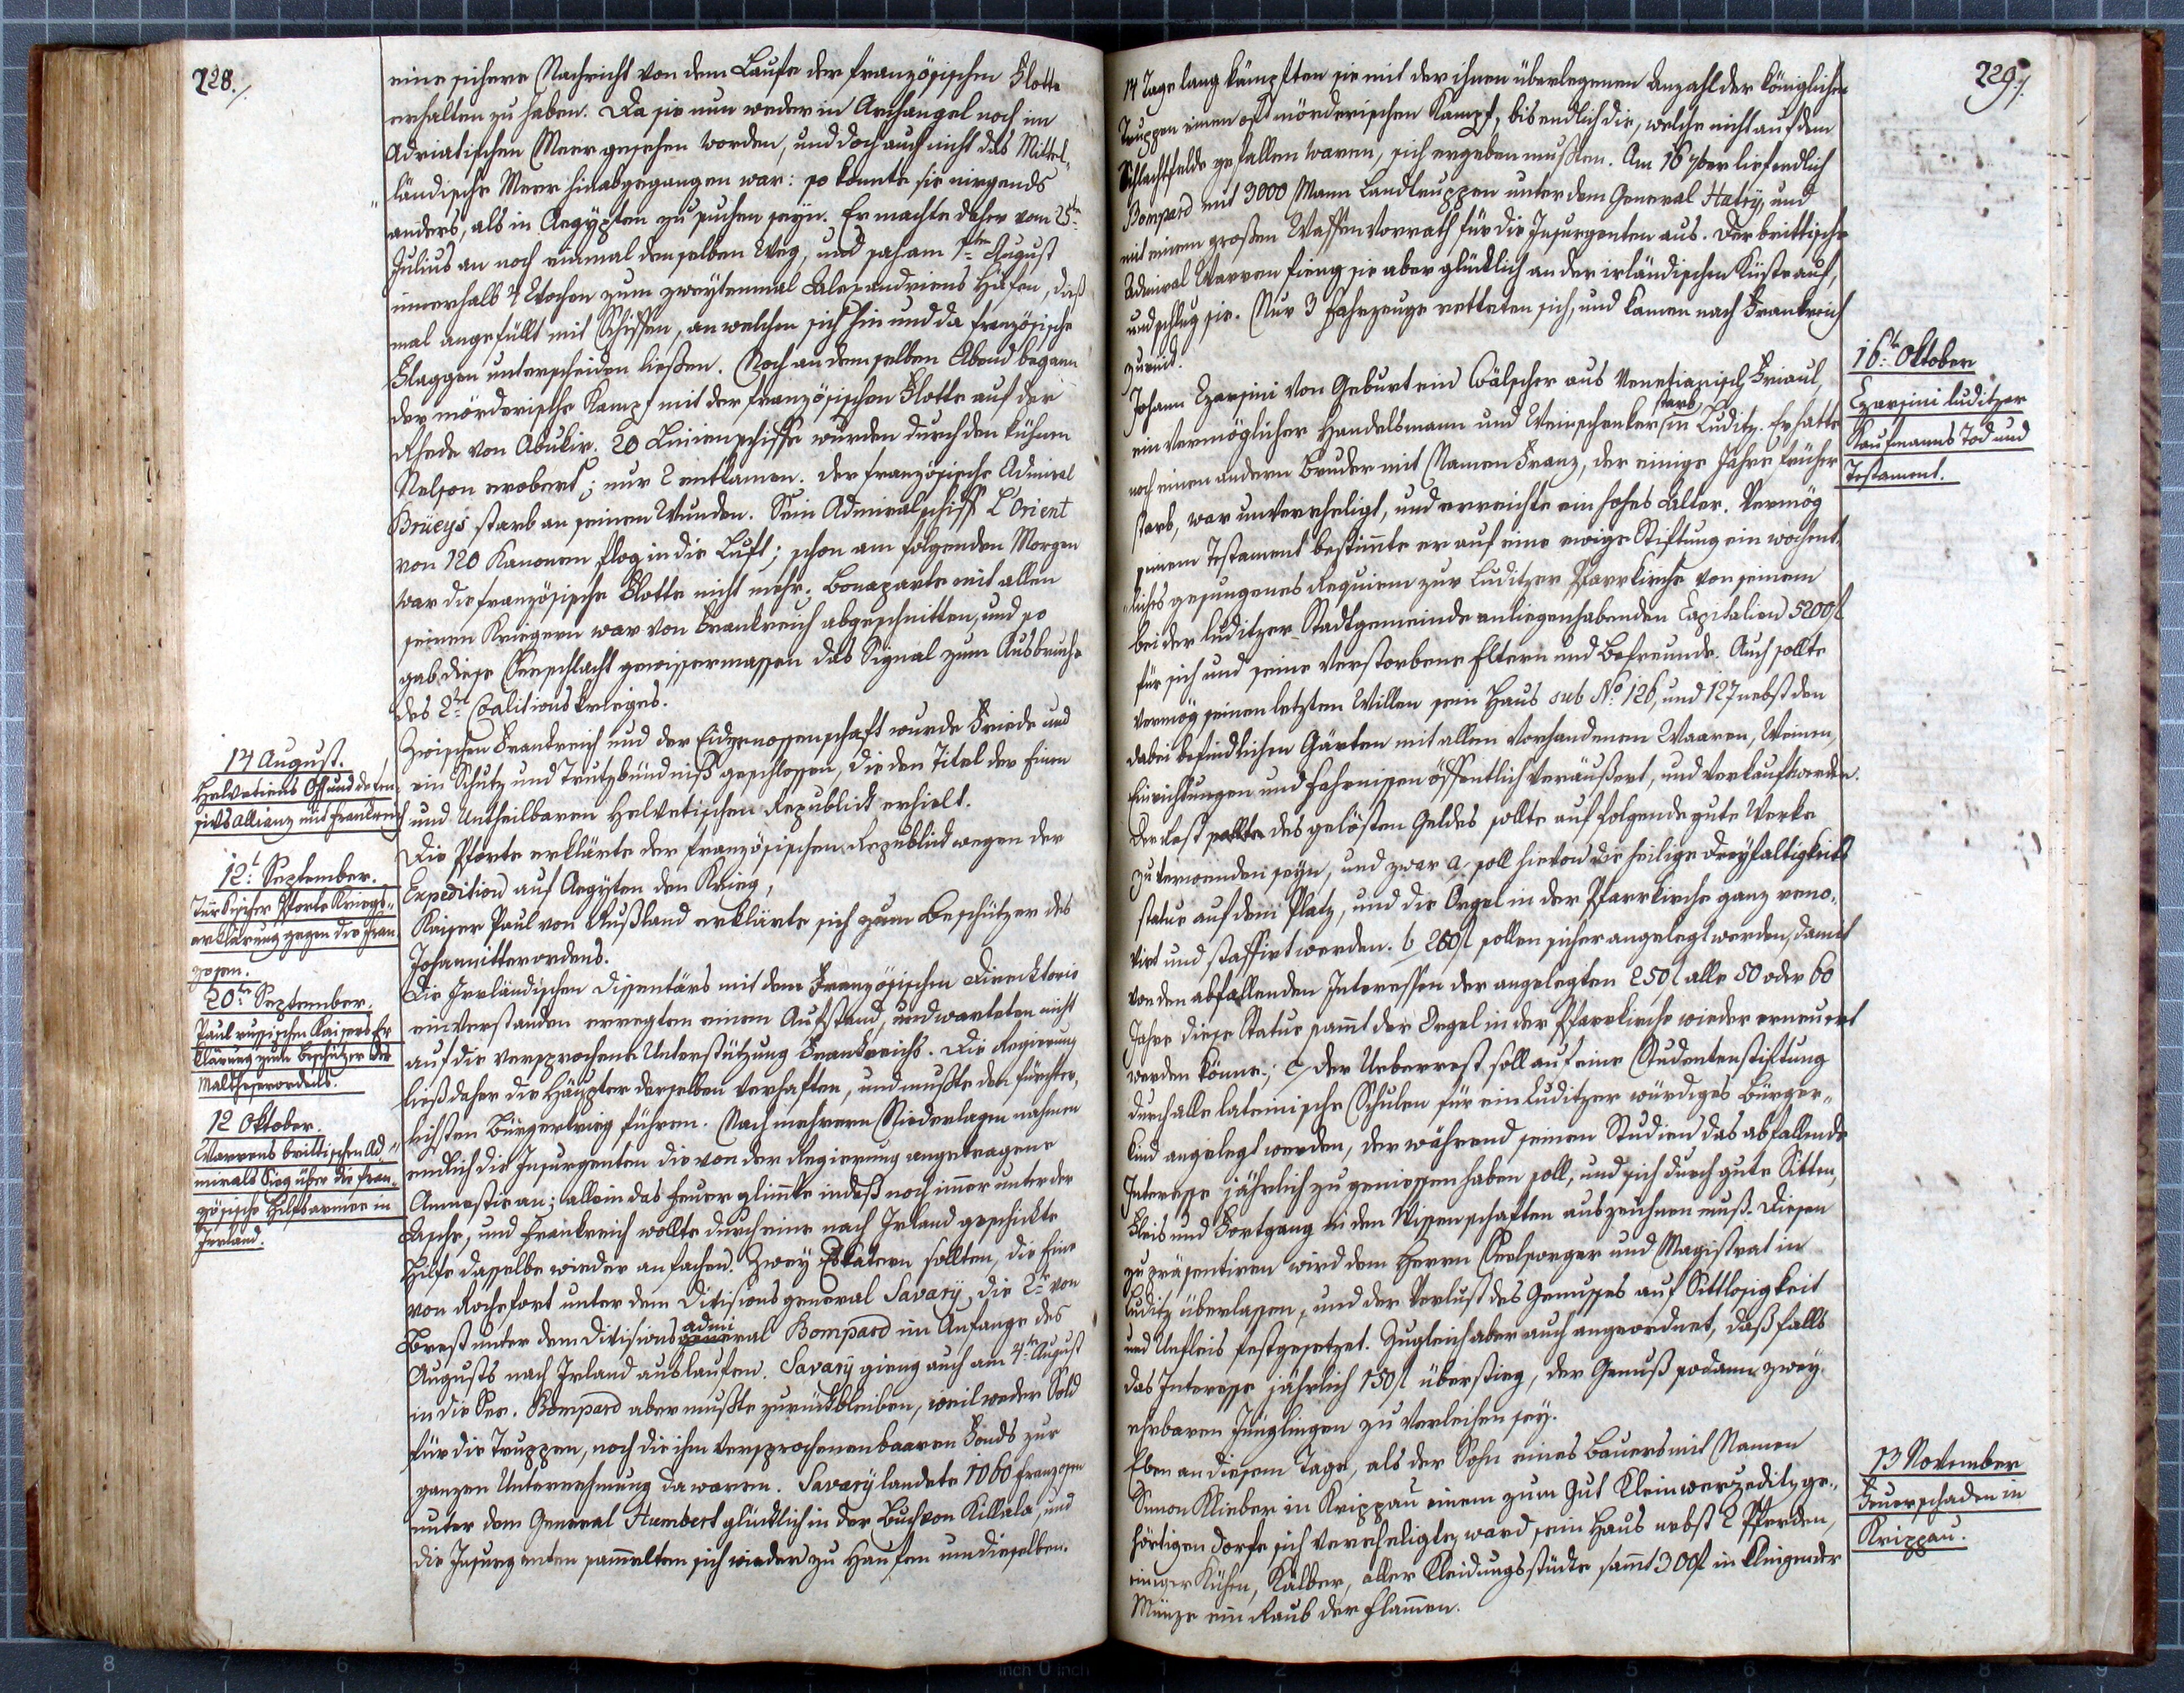 228./.
eine sichere Nachricht von dem Laufe der französischen Flotte
erhalten zu haben. Da sie nun weder in Archangel noch im
Adriatischen Meer gesehen worden, und doch auch nicht das Mittel„
ländische Meer hinabgegangen war: so konnte sie nirgends
anders, als in Aegypten zu suchen seyn. Er machte daher vom 25tn
Julius an noch einmal denselben Weg, und sah am 1ten August
innerhalb 4 Wochen zum zweytenmal Alexandriens Häfen, dieß
mal angefüllt mit Schiffen, an welchen sich hin und da französische
Flaggen unterscheiden ließen. Noch an demselben Abend begann
der mörderische Kampf mit der französischen Flotte auf der
Rhede von Abukir. 20 Linienschiffe wurden durch den kühnen
Nelson erobert; nur 2 entkamen. Der französische Admiral
Brüeys starb an seinen Wunden. Sein Admiralschiff L'Orient
von 120 Kanonen flog in die Luft; schon am folgenden Morgen
war die französische Flotte nicht mehr; Bonaparte mit allen
seinen Kriegern war von Frankreich abgeschnitten, und so
gab diese Seeschlacht gewissermassen das Signal zum Ausbruche
des 2tn Coalitionskrieges.
14 August.
Helvetiens Off und defen
sivs Allianz mit Frankreich
Zwischen Frankreich und der Eidgenossenschaft wurde Friede und
ein Schutz und Trutzbündniß geschlossen, die den Titel der Einen
und Untheilbaren Helvetischen Republick erhielt.
12t September.
Türkischer Pforte Kriegs„
erklärung gegen die Fran
zosen.
Die Pforte erklärte der französischen Republick wegen der
Expedition auf Aegypten den Krieg,
20tn September.
Paul russischen Kaisers Er
klärung zum Beschützer des
Maltheserordens.
Kaiser Paul von Rußland erklärte sich zum Beschützer des
Johannitterordens.
12 Oktober.
Warrens brittischen Ad„
mirals Sieg über die fran„
zösische Hilfsarmee in
Irrland.
Die Irrländischen Dissentärs mit dem Französischen Direcktorio
einverstanden erregten einen Aufstand, und warteten nicht
auf die versprochene Unterstützung Frankreichs. Die Regierung
ließ daher die Häupter derselben verhaften, und mußte den fürchter„
lichsten Bürgerkrieg führen. Nach mehrern Niederlagen nahmen
endlich die Insurgenten die von der Regierung angetragene
Amnestie an; allein das Feuer glimmte indeß noch immer unter der
Asche, und Frankreich wollte durch eine nach Irland geschickte
Hilfe dasselbe wieder anfachen. Zwey Eskatern sollten, die Eine
von Rochefort unter dem Divisions general Savarÿ, die 2te von
Brest unter dem Divisions admiral Bompard im Anfange des
Augusts nach Irland auslaufen. Savarÿ gieng auch am 4ten August
in die See. Bompard aber mußte zurückbleiben, weil weder Sold
für die Truppen, noch die ihm versprochenen baaren Fonds zur
ganzen Unternehmung da waren. Savarÿ landete 1060 Franzosen
unter dem General Humbert glücklich in der Bucht von Killala, und
die Insurgenten sammelten sich wieder zu Haufen um dieselben.
229./.
14 Tage lang kämpften sie mit der ihnen überlegenen Anzahl der königlichen
Truppen einen oft mörderischen Kampf, bis endlich die, welche nicht auf dem
Schlachtfelde gefallen waren, sich ergeben mußten. Am 16 7ber lief endlich
Bompard mit 3000 Mann Landtruppen unter dem General Hatrÿ, und
mit einem großen Waffenvorrath für die Insurgenten aus. Der brittische
Admiral Warren fieng sie aber glücklich an der irländischen Küste auf,
und schlug sie. Nur 3 Fahrzeuge retteten sich, und kamen nach Frankreich
zurück.
16tn Oktober
Czarsini luditzer
Kaufmanns Tod und
Testament.
Johann Czarsini von Geburt ein Wälscher aus Venetianisch Friaul,
ein vermöglicher Handelsmann und Weinschenker starb in Luditz. Er hatte
noch einen andern Bruder mit Namen Franz, der einige Jahre früher
starb, war unverehligt, und erreichte ein hohes Alter. Vermög
seinem Testament bestimmte er auf eine ewige Stiftung ein wöchent„
liches gesungenes Requiem zur Luditzer Pfarrkirche von seinem
bei der luditzer Stadtgemeinde anliegenhabenden Capitalien 5200 fl
für sich und seine verstorbene Eltern und Befreunde. Auch sollte
vermög seinen letzten Willen sein Haus sub No 126, und 127 nebst den
dabei befindlichen Gärten mit allen vorhandenen Waaren, Weinen,
Einrichtungen und Fahrnissen öffentlich veräußert, und verkauft werden.
Der Rest sollte des gelösten Geldes sollte auf folgende gute Werke
zu verwenden seyn, und zwar a, soll hievon die heilige Dreyfaltigkeits
statue auf dem Platz, und die Orgel in der Pfarrkirche ganz reno„
virt und staffirt werden. b, 250 fl sollen sicher angelegt werden, damit
von den abfallenden Interessen der angelegten 250 fl alle 50 oder 60
Jahre diese Statue sammt der Orgel in der Pfarrkirche wieder erneuert
werden könne; c, der Ueberrest soll auf eine Studentenstiftung
durch alle lateinische Schulen für ein Luditzer würdiges Bürger„
kind angelegt werden, der während seinen Studien das abfallende
Interesse jährlich zu geniessen haben soll, und sich durch gute Sitten,
Fleis und Fortgang in den Wissenschaften auszeichnen muß. Diesen
zu präsentiren wird dem Herrn Seelsorger und Magistrat in
Luditz überlassen, und der Verlust des Genusses auf Sittlosigkeit
und Unfleis festgesetzet. Zugleich aber auch angeordnet, daß falls
das Interesse jährlich 150 fl überstieg, der Genuß sodann zwey
ehrbaren Jünglingen zu verleihen sey.
13 November
Feuerschaden in
Krippau.
Eben an diesem Tage, als der Sohn eines Bauers mit Namen
Simon Klieber in Krippau einem zum Gut Kleinwerzeditz ge„
hörigen Dorfe sich verehligte, ward sein Haus nebst 2 Pferden,
einiger Kühen, Kälber, aller Kleidungsstücke sammt 300 fl in klingender
Münze ein Raub der Flammen.